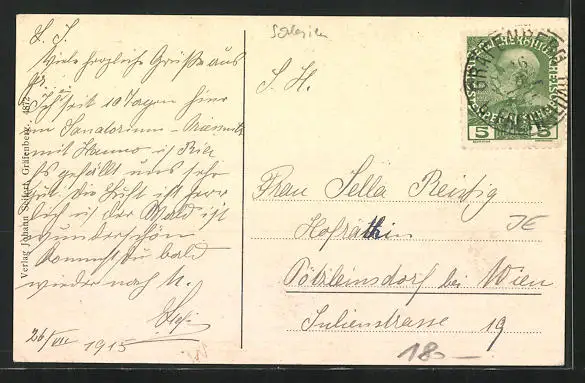 Schlesien
L. S.
Viele herzliche Grüße aus
Gr.
Ich seit 10 Tagen hier
im Sanatorium - Priessnitz
mit Hanno is Rice
Es gefällt uns sehr
gut. Die Luft ist herr
lich u. der Wald ist
wunderschön.
Kommst du bald
wieder nach
26/VIII 1915
Verlag Johann Seifert, Gräfenberg. 4878
GRÄFENBERG
5 5
S. H.
Frau Sella Reissig
Hofräthin
Pötzleinsdorf bei Wien
Julienstrasse 19
JE
180-